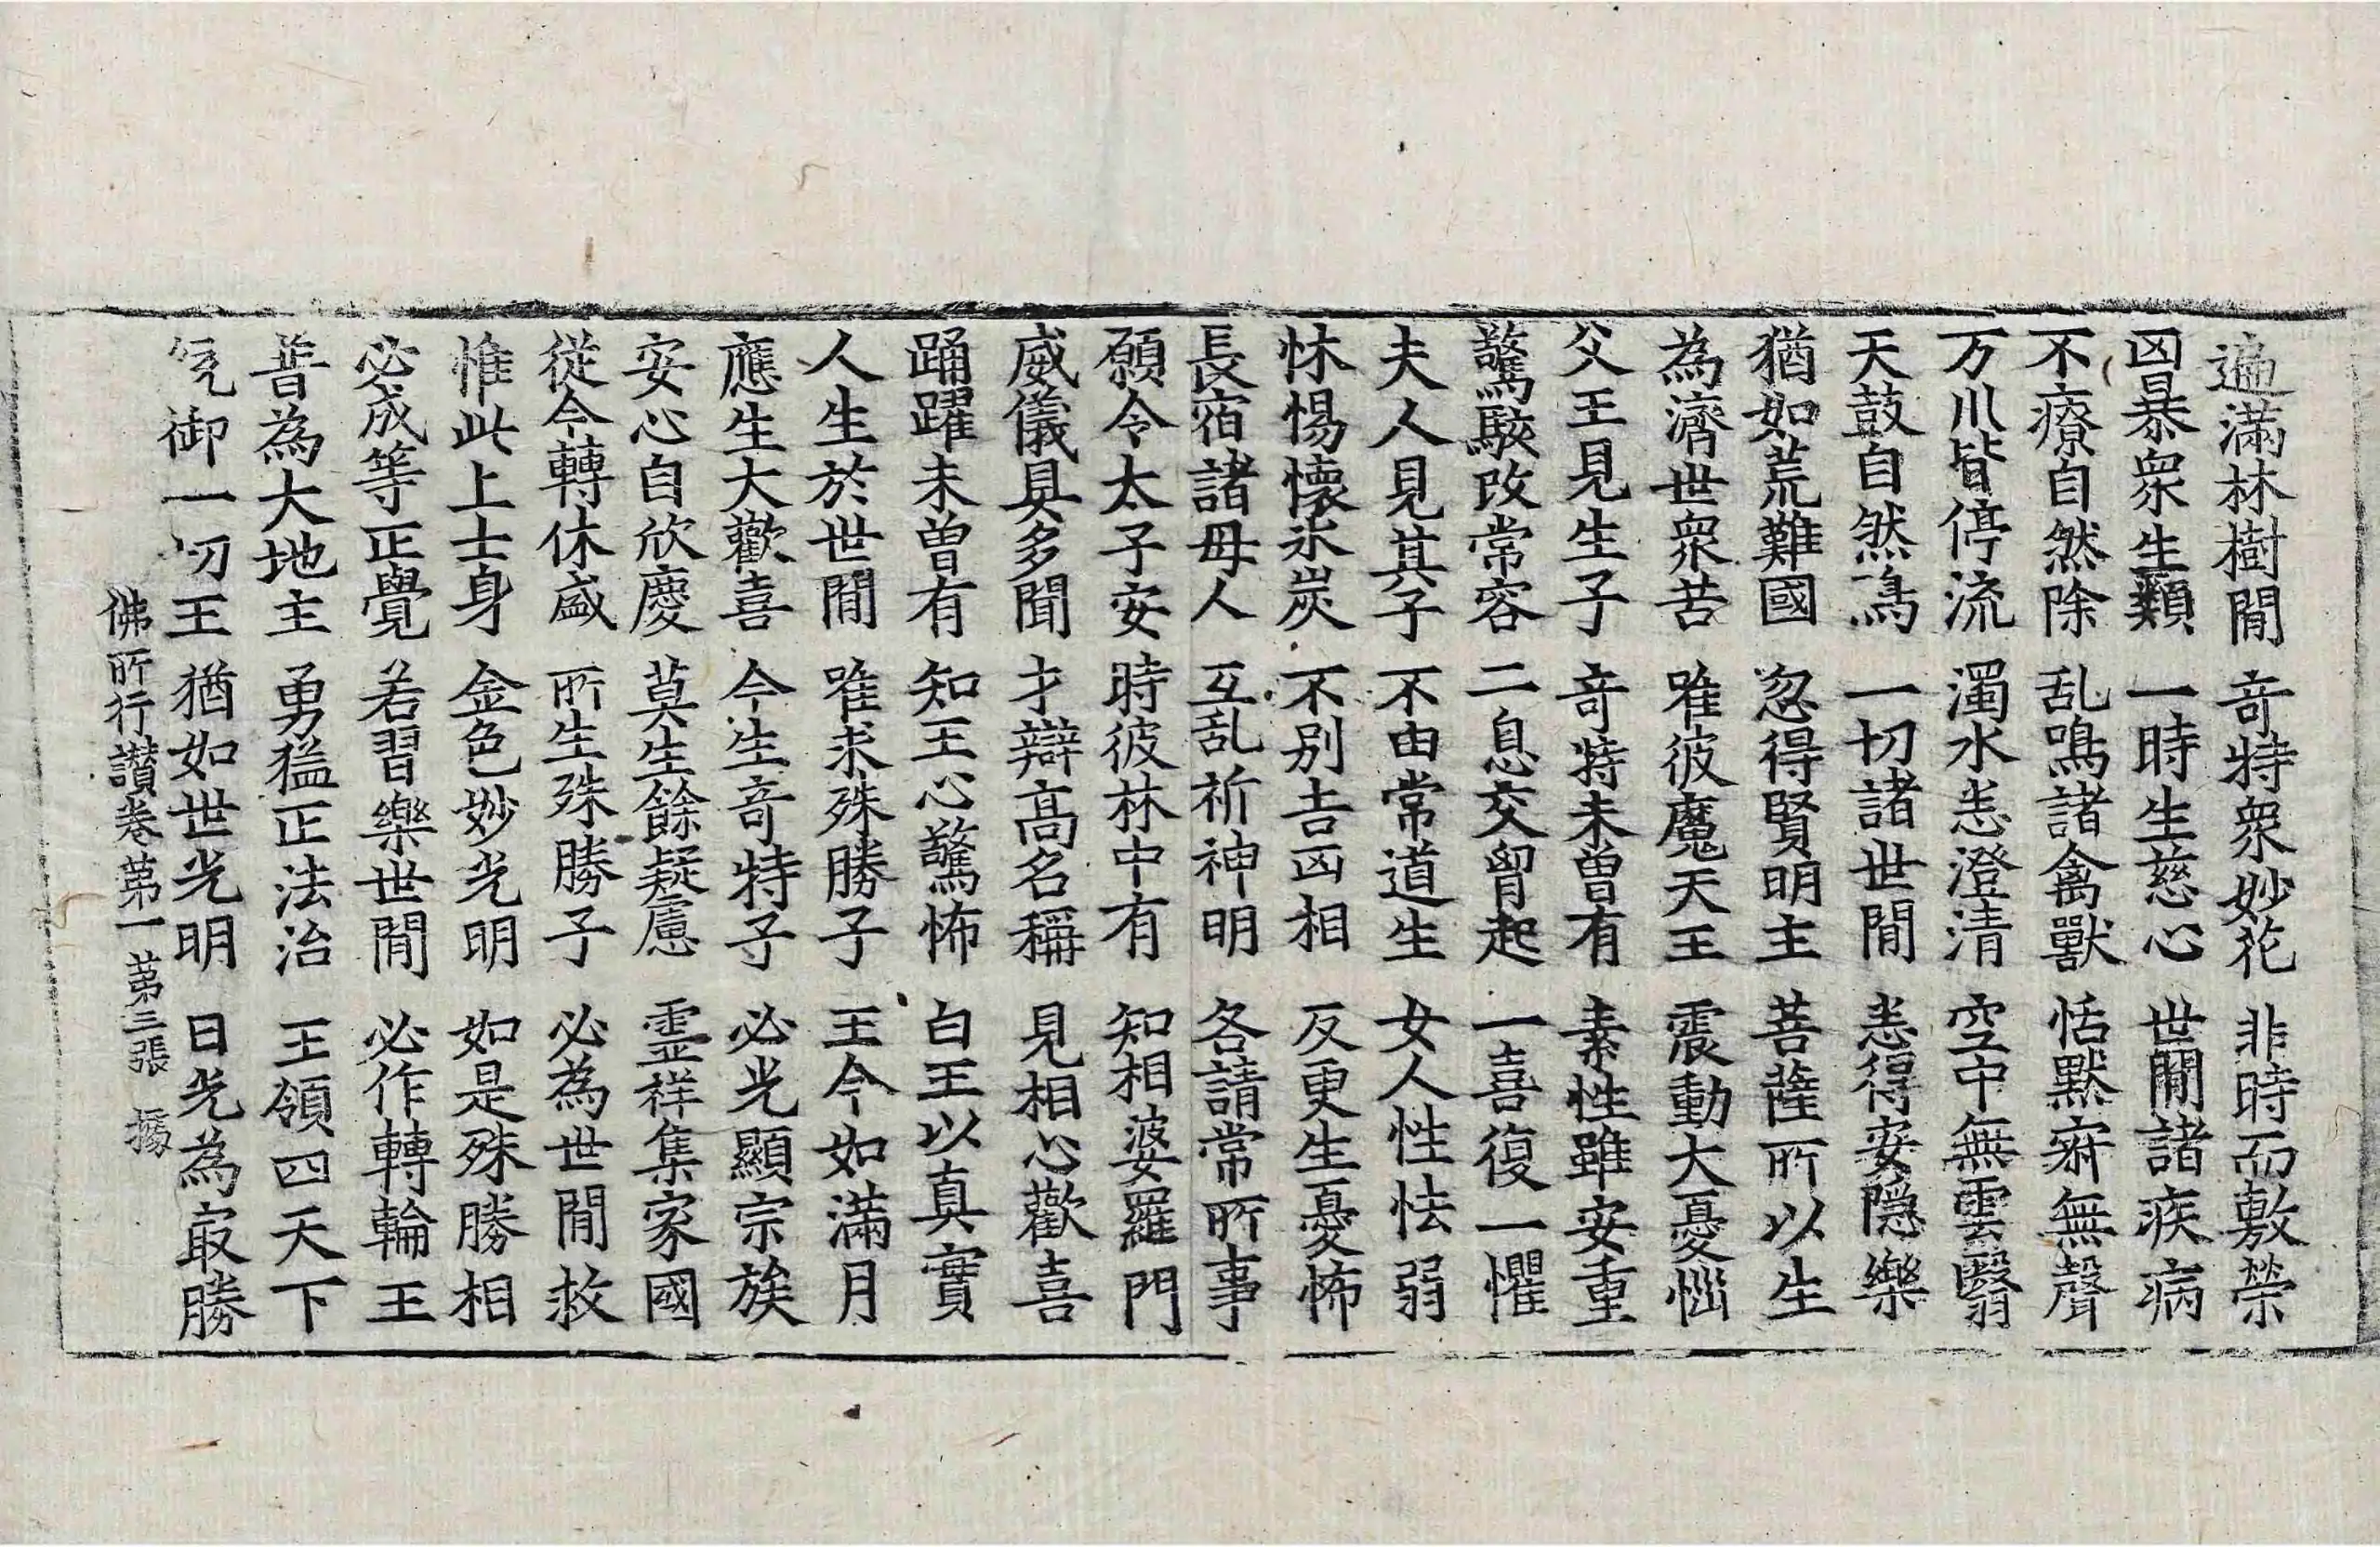 遍滿林樹間 奇特衆妙花 非時而敷榮
凶暴衆生類 一時生慈心 世間諸疾病
不療自然除 乱鳴諸禽獸 恬默寂無聲
万川皆停流 濁水悉澄清 空中無雲翳
天鼓自然鳴 一切諸世間 悉得安隱樂
猶如荒難國 忽得賢明主 菩薩所以生
為濟世衆苦 唯彼魔天王 震動大憂惱
父王見生子 奇特未曾有 素性雖安重
驚駭改常容 二息交胷起 一喜復一懼
夫人見其子 不由常道生 女人性怯弱
怵惕懷氷炭 不別吉凶相 反更生憂怖
長宿諸母人 互乱祈神明 各請常所事
願令太子安 時彼林中有 知相婆羅門
威儀具多聞 才辯高名稱 見相心歡喜
踊躍未曾有 知王心驚怖 白王以真實
人生於世間 唯求殊勝子 王今如滿月
應生大歡喜 今生奇特子 必光顯宗族
安心自欣慶 莫生餘疑慮 霊祥集家國
從今轉休盛 所生殊勝子 必為世間救
惟此上士身 金色妙光明 如是殊勝相
必成等正覺 若習樂世間 必作轉輪王
普為大地主 勇猛正法治 王領四天下
御一切王 猶如世光明 日光為冣勝
佛所行讃卷第一 第三張